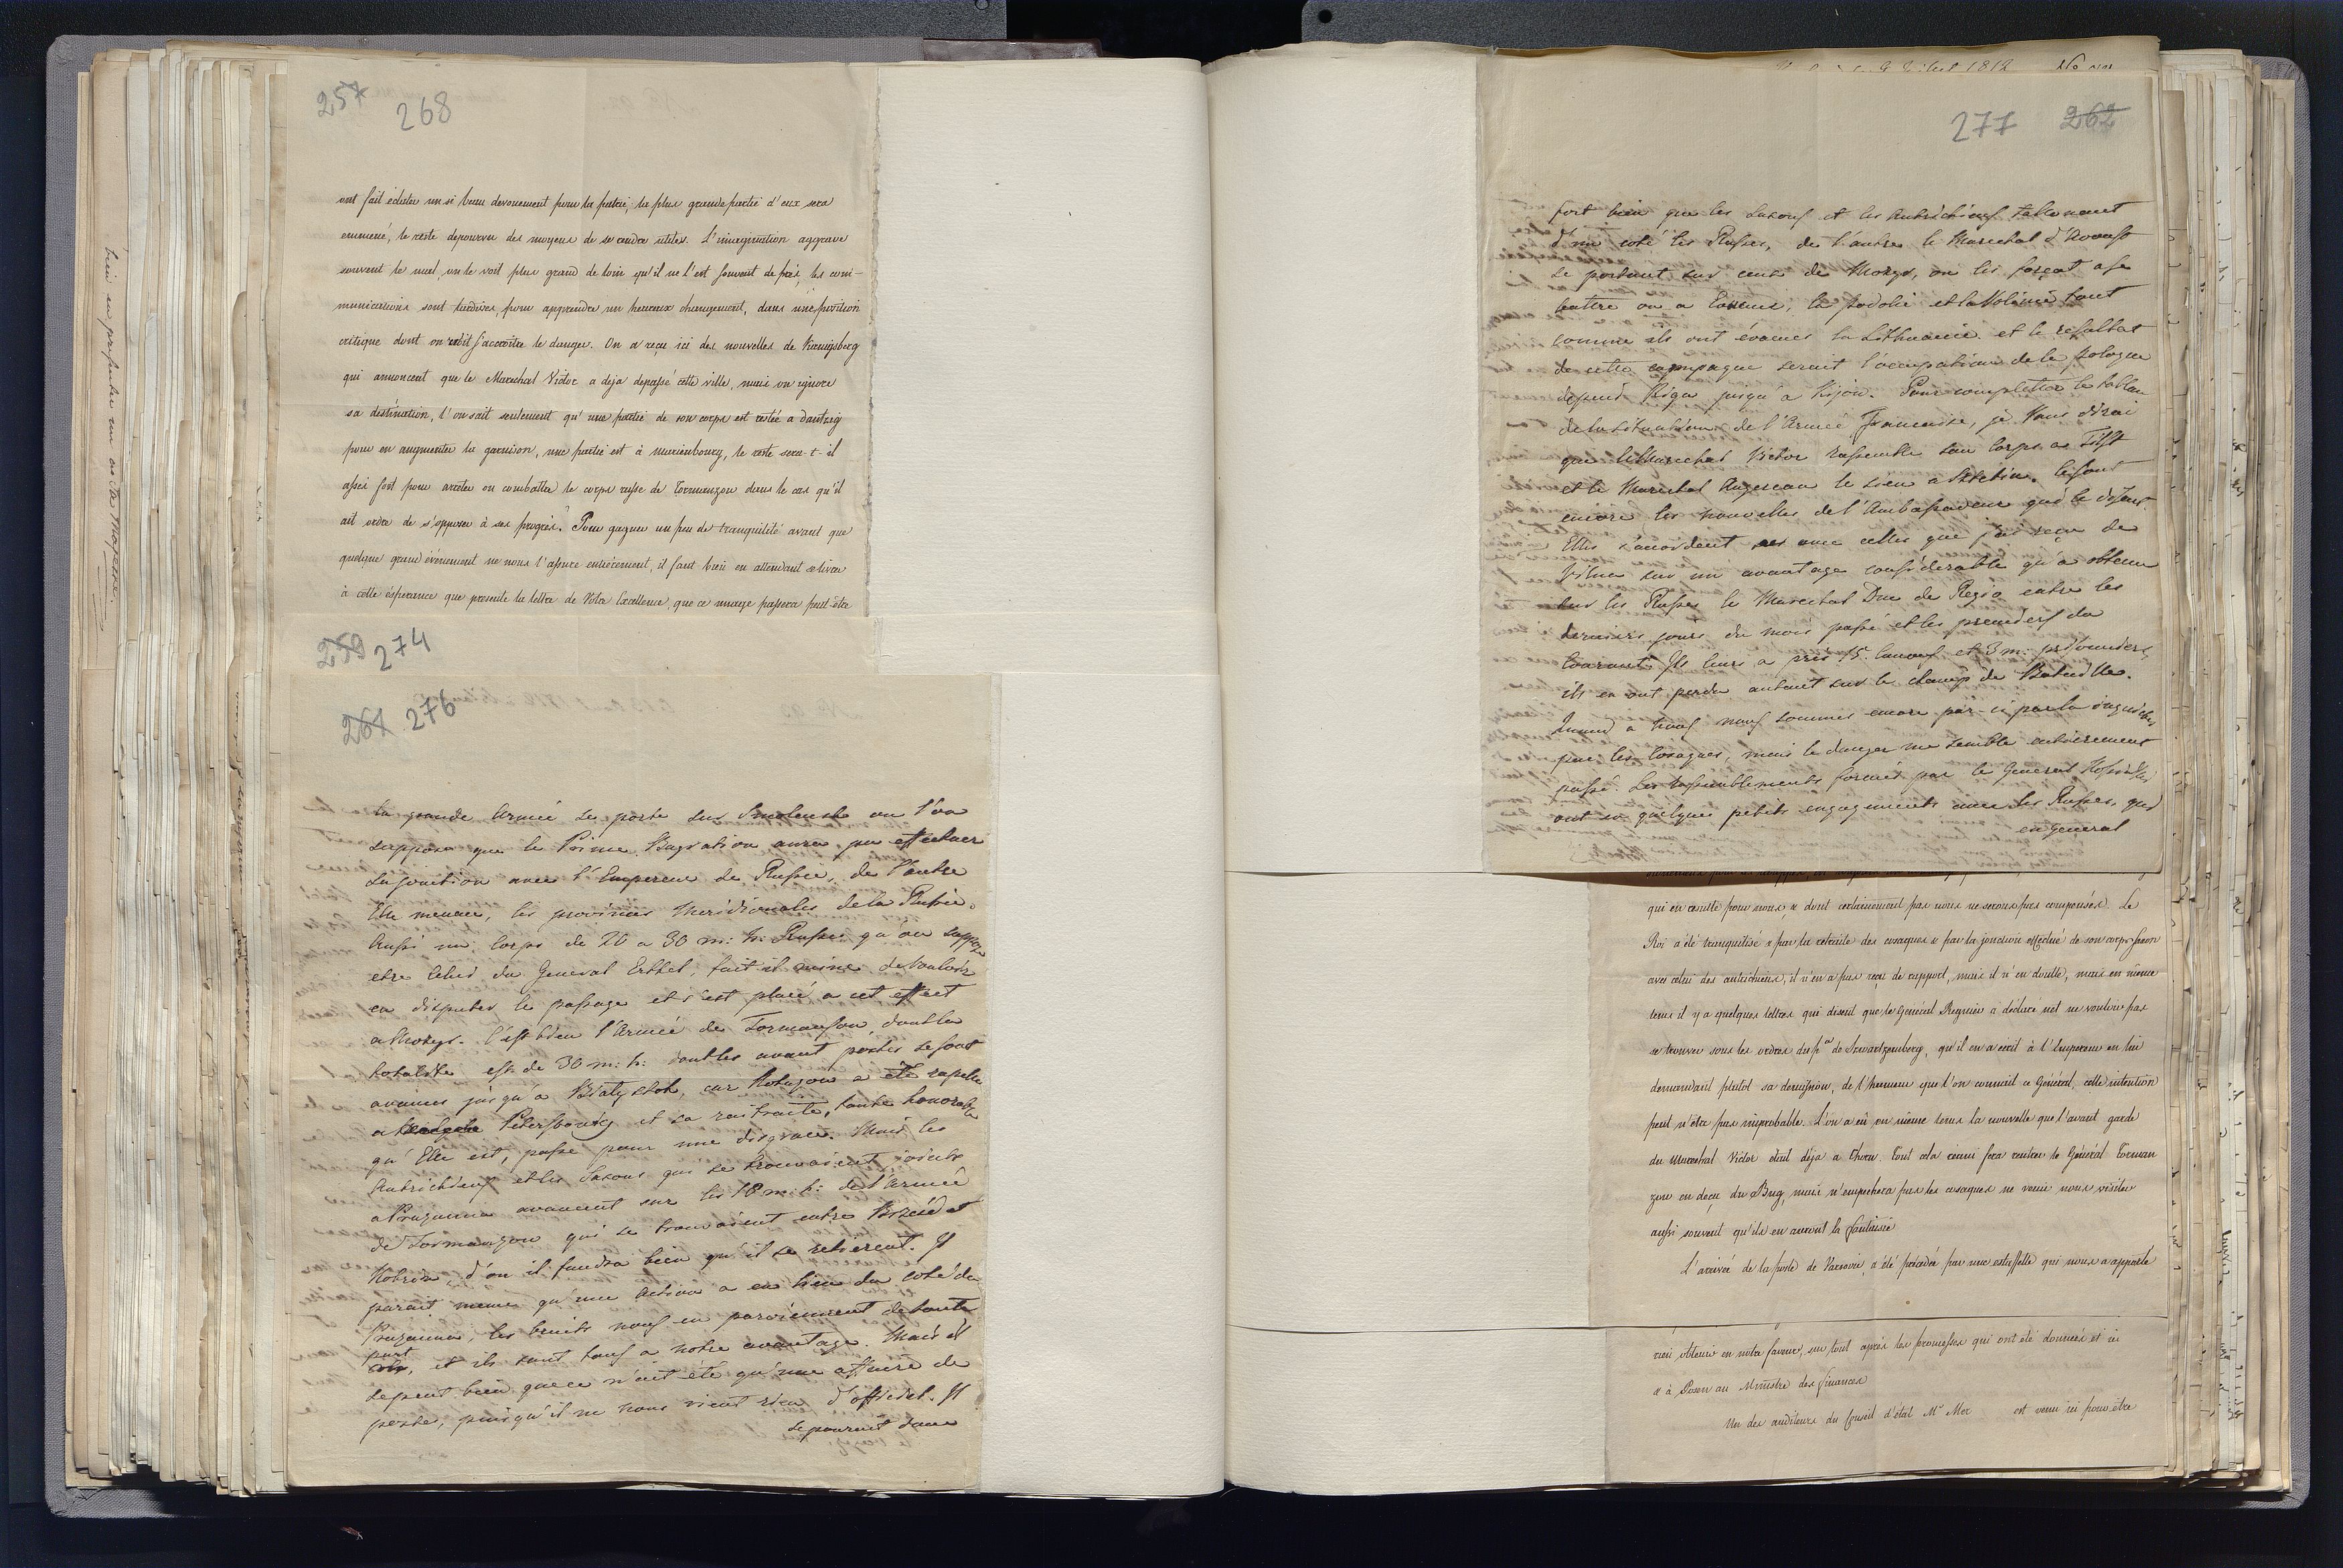 257 268
ont fait éclater un si beau devouement pour la patrie, la plus grande partie d'eux sera
emmené, le reste depourvu des moyens de se rendre utiles. L'imagination aggrave
souvent le mal, on le voit plus grand de loin qu'il ne l'est souvent de près, les com-
munications sont tardives, pour apprendre un heureux changement, dans une position
critique dont on voit s'accroitre le danger. On a reçu ici des nouvelles de Kœnigsberg
qui annoncent que le Marechal Victor a deja depassé cette ville, mais on ignore
sa destination, l'on sait seulement qu'une partie de son corps est restée a Dantzig
pour en augmenter la garnison, une partie est à Marienbourg, le reste sera-t-il
assez fort pour arreter ou combattre le corps russe de Tormanzow dans le cas qu'il
ait ordre de s'opposer à ses progrès? Pour gagner un peu de tranquilité avant que
quelque grand événement ne nous l'assure entièrement, il faut bien en attendant se livrer
à cette ésperance que presente la lettre de Votre Excellence, que ce nuage passera peut-être
259 274
261 276
la grande Armée se porte sur Smolensk ou l'on
suppose que le Prince Bagration aura pu effectuer
sa jonction avec l'Empereur de Russie, de l'autre
Elle menace, les provinces Meridionales de la Russie.
Aussi un Corps de 20 a 30 m: h: Russes qu'on suppose
etre celui du General Erthel, fait il mine de vouloir
en disputer le passage et s'est placé a cet effet
a Mozyr. C'est bien l'Armée de Tormansow, dont la
totalité est de 30 m: h: dont les avant postes se sont
avancés jusqu'à Białystok, car Kotuzow a été rapellé
a Petersbourg et sa retraite, toute honorable
qu'Elle est, passe pour une disgrace. Mais les
Autrichiens et les Saxons qui se trouvoient joints
a Pruzanna avancent sur les 18 m. h: de l'Armée
de Tormanzow qui se trouvoient entre Brzesc et
Kobrin, d'ou il faudra bien qu'il se retirent. Il
parait meme qu'une action a eu lieu du coté de
Pruzanna, les bruits nous en parviennent de toute
part, et ils sont tous a notre avantage. Mais il
se peut bien que ce n'ait été qu'une affaire de
poste, puisqu'il ne nous vient rien d'officiel. Il
se pourrait donc
bien en porter un acte
1812 No
277 262
fort bien que les Saxons et les Autrichiens talonnant
d'un coté les Russes, de l'autre le Marechal d'Avoust
se portant sur ceux de Mozyr, on les forçat a se
battre ou a evacuer, la Podolie et la Volinie tout
comme ils ont évacué la Lithuanie et le resultat
de cette campagne serait l'occupation de la Pologne
depuis Riga jusqu'a Kijow. Pour completter le tableau
de la situation de l'Armée Françoise, je Vous dirai
que le Marechal Victor rassemble son Corps a Tilsit
et le Marechal Augereau le sien a Stetin. Ce sont
encore les nouvelles de l'Ambassadeur qui le disent.
Elles s'accordent avec celles que j'ai reçu de
Vilna sur un avantage considerable qu'a obtenu
sur les Russes le Marechal Duc de Regio entre les
derniers jours du mois passé et les premiers du
courant. Il leurs a pris 15. canons et 3 m: prisonniers,
ils en ont perdu autant sur le champ de Bataille.
Quand a nous nous sommes encore par-ci par la inquietés
par les Cosaques, mais le danger me semble entierement
passé. Les rassemblements formés par le General Kosinski
ont eu quelques petits engagements avec les Russes, qui
en general
qui en resulte pour nous, & dont certainement pas nous ne serons pas compensés. Le
Roi a été tranquilisé & par la retraite des cosaques & par la jonction effectué de son corps saxon
avec celui des autrichiens, il n'en a pas reçu de rapport, mais il n'en doutte, mais en même
tems il y a quelques lettres qui disent que le Général Regnier a déclaré net ne vouloir pas
se trouver sous les ordres du Pce de Swartzemberg, qu'il en a écrit à l'Empereur en lui
demandant plutôt sa demission, de l'humeur que l'on connait ce Général, cette intention
peut n'être pas improbable. L'on a eû en même tems la nouvelle que l'avant garde
du Marechal Victor etait déja a Thorn. Tout cela réuni fera rentrer le Général Torman
zow en deça du Bug, mais n'empechera pas les cosaques ne venir nous visiter
aussi souvent qu'ils en auront la fantaisie
L'arrivée de la poste de Varsovie, a été précédée par une estaffette qui nous a apporté
rien obtenir en notre faveur, sur tout après les promesses qui ont été données et ici
& à Posen au Ministre des finances
Un des auditeurs du Conseil d'état Mr Mer est venu ici pour être